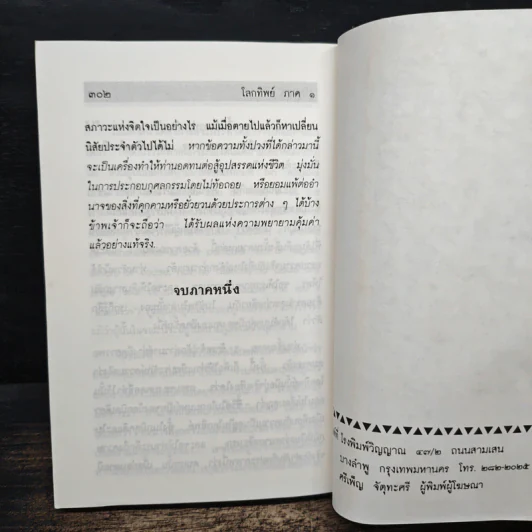 ๓๐๒ โลกทิพย์ ภาค ๑
สภาวะแห่งจิตใจเป็นอย่างไร แม้เมื่อตายไปแล้วก็หาเปลี่ยน
นิสัยประจำตัวไปได้ไม่ หากข้อความทั้งปวงที่ได้กล่าวมานี้
จะเป็นเครื่องทำให้ท่านอดทนต่อสู้อุปสรรคแห่งชีวิต มุ่งมั่น
ในการประกอบกุศลกรรมโดยไม่ท้อถอย หรือยอมแพ้ต่ออำ
นาจของสิ่งที่คุกคามหรือยั่วยวนด้วยประการต่าง ๆ ได้บ้าง
ข้าพเจ้าก็จะถือว่า ได้รับผลแห่งความพยายามคุ้มค่า
แล้วอย่างแท้จริง.
จบภาคหนึ่ง
ที่ โรงพิมพ์วิญญาณ ๔๗/๒ ถนนสามเสน
บางลำพู กรุงเทพมหานคร โทร. ๒๘๒-๒๐๒๕
ศรีเพ็ญ จัตุทะศรี ผู้พิมพ์ผู้โฆษณา